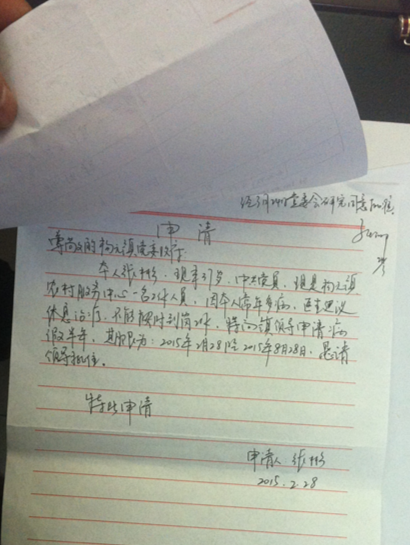 经3月24日党委会研究同意
申 请
尊敬的构元镇党委政府:
本人张,现年37岁,中共党员,现是构元镇
农村服务中心一名工作人员,因本人常年多病,医生建议
休息治疗,不能按时到岗工作,特向镇领导申请病
假半年,其期限为:2015年2月28日至2015年8月28日,恳请
领导批准。
特此申请
申请人 张
2015.2.28